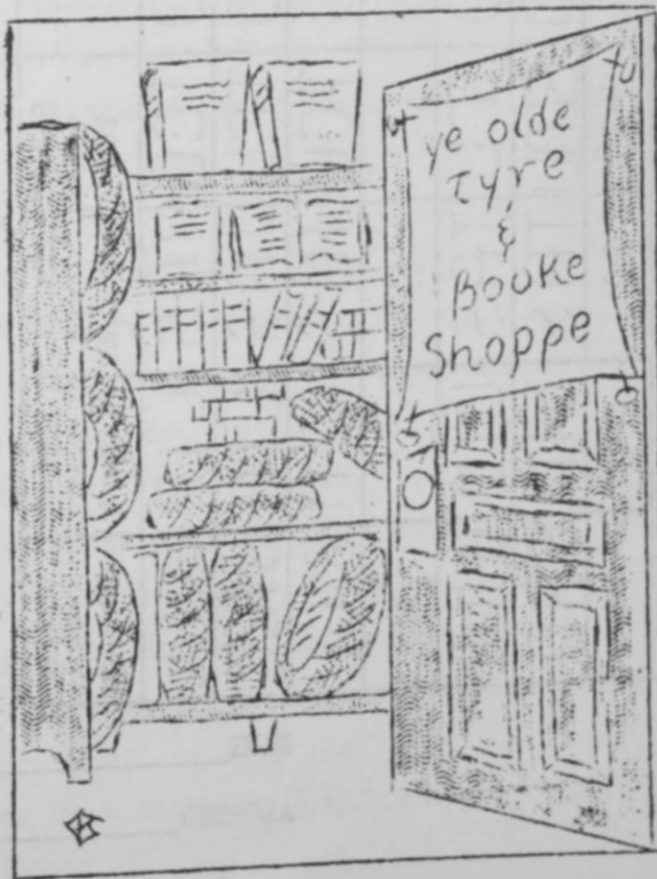 ye olde
Tyre
&
Booke
Shoppe